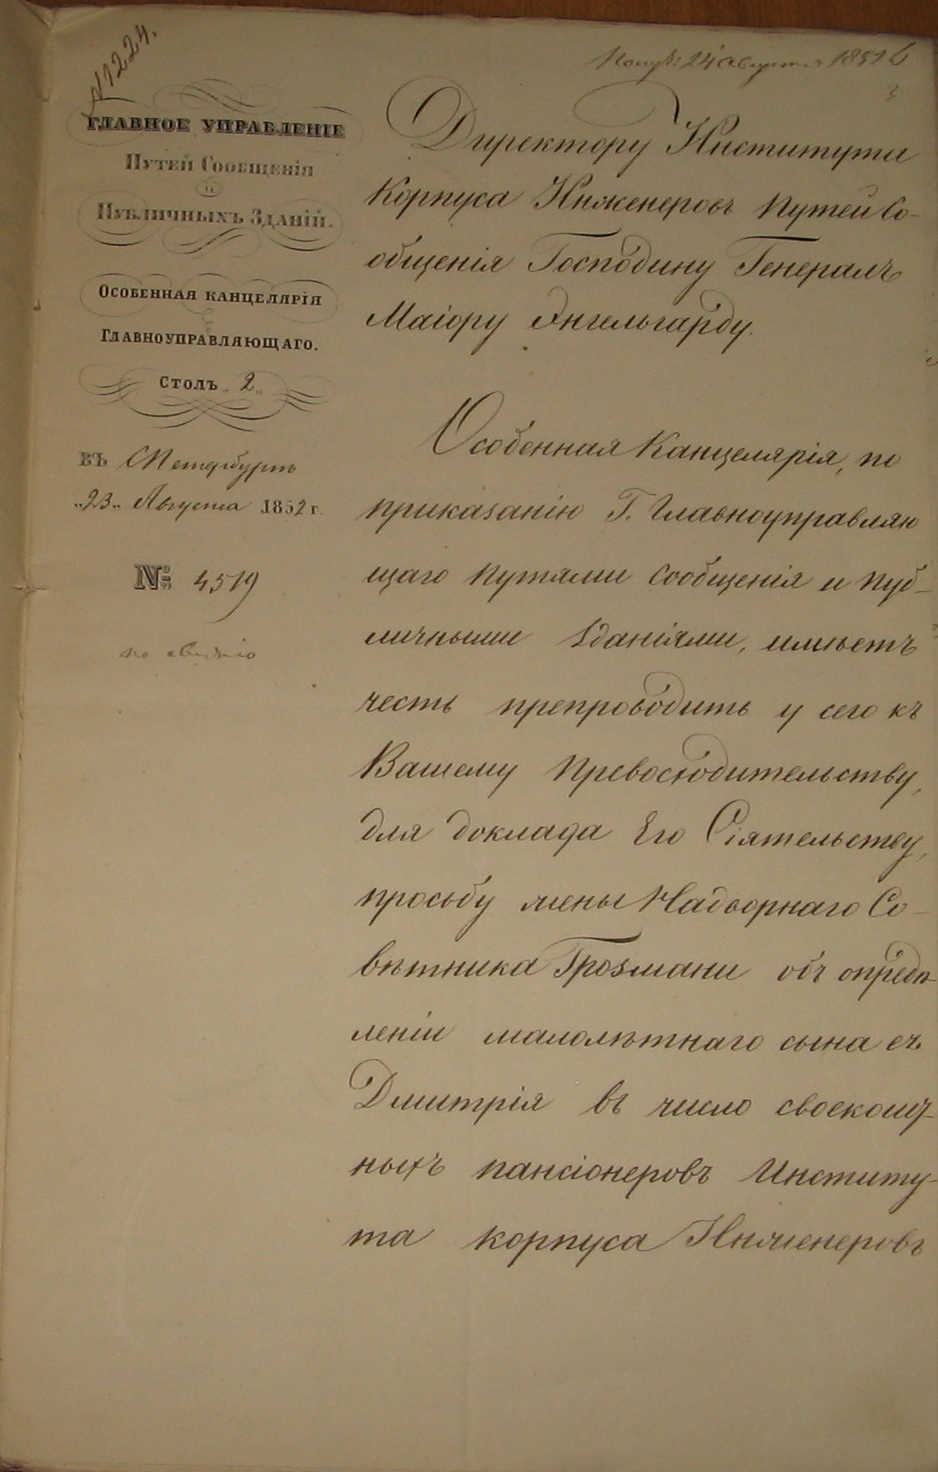 № 1224.
Получ: 24 Августа 1852
ГЛАВНОЕ УПРАВЛЕНІЕ
ПУТЕЙ СООБЩЕНІЯ
И
ПУБЛИЧНЫХЪ ЗДАНІЙ.
ОСОБЕННАЯ КАНЦЕЛЯРІЯ
ГЛАВНОУПРАВЛЯЮЩАГО.
СТОЛЪ „2„
ВЪ СПетербургѣ
„23„ Августа 1852 г.
№ 4519
Директору Института
Корпуса Инженеровъ Путей Со-
общенія Господину Генералъ
Маіору Энгельгарду.
Особенная Канцелярія, по
приказанію Г. Главноуправляю
щаго Путями Сообщенія и Пуб-
личными Зданіями, имѣетъ
честь препроводить у сего къ
Вашему Превосходительству,
для доклада Его Сіятельству,
просьбу жены Надворнаго Со-
вѣтника Грозмани объ опредѣ-
леніи малолѣтнаго сына ея
Дмитрія въ число своекошт-
ныхъ пансіонеровъ Институ-
та Корпуса Инженеровъ